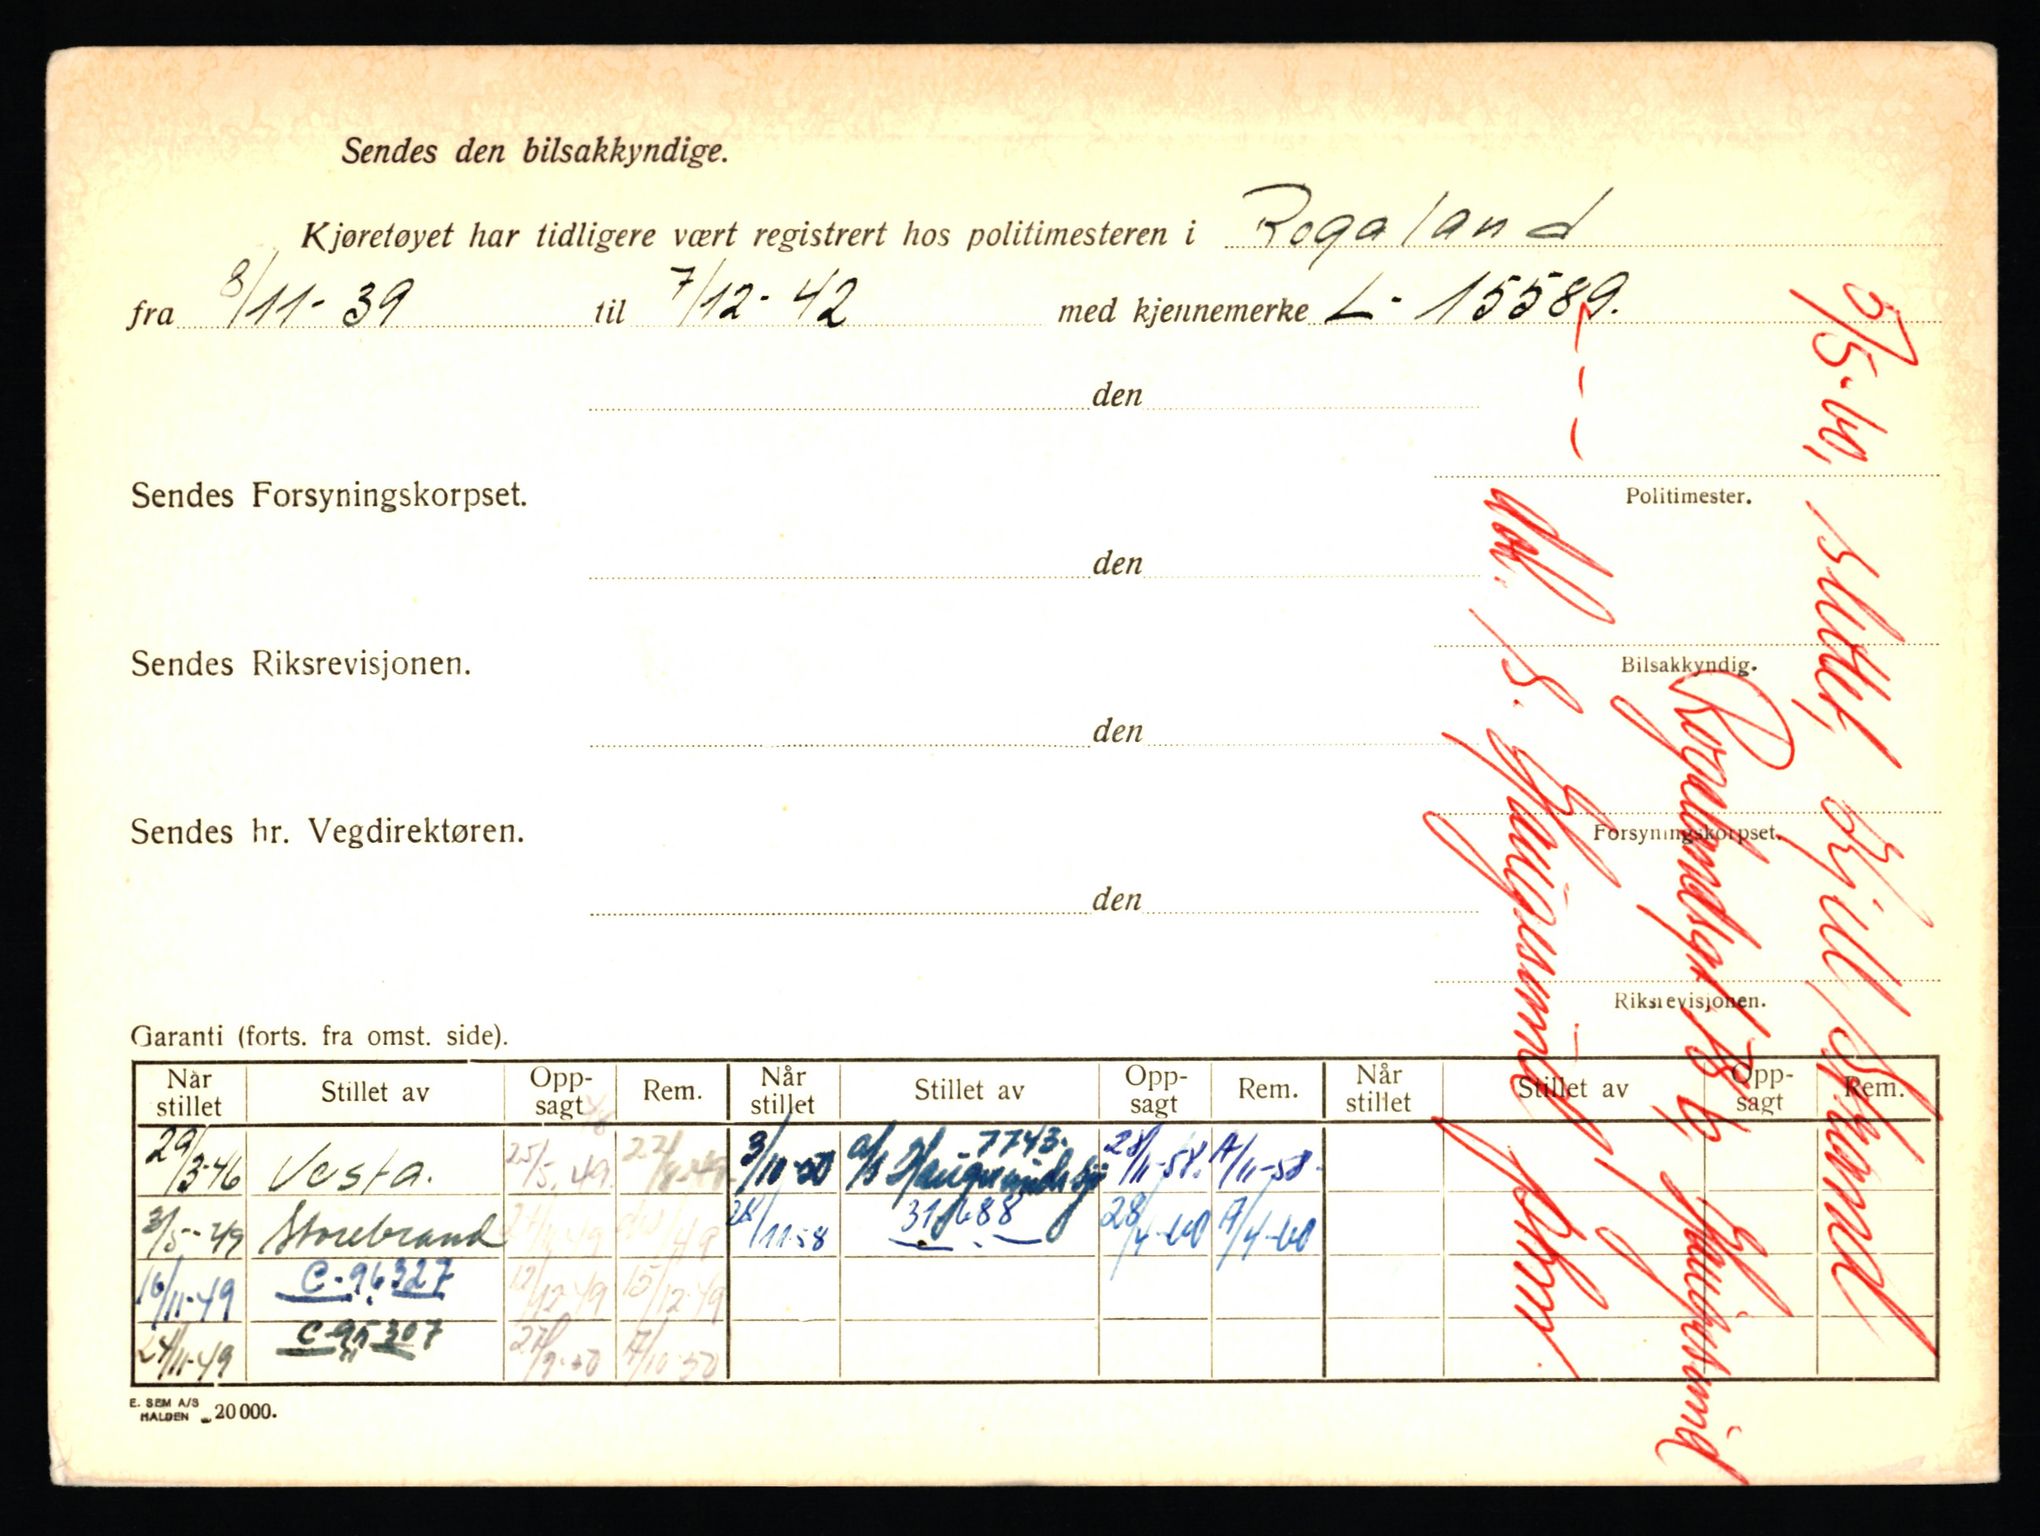 Sendes den bilsakkyndige.
Kjøretøyet har tidligere vært registrert hos politimesteren i Rogaland
fra 8/11-39 til 7/12-42 med kjennemerke L-15589.
den
Politimester.
Sendes Forsyningskorpset.
den
Bilsakkyndig.
Sendes Riksrevisjonen.
den
Forsyningskorpset.
Sendes hr. Vegdirektøren.
den
Riksrevisjonen.
Garanti (forts. fra omst. side).
Når stillet Stillet av Opp-sagt Rem. Når stillet Stillet av Opp-sagt Rem. Når stillet Stillet av Opp-sagt Rem.
29/3-46 Vesta. 25/5.49 3/10-50 7743. 28/11-58. 17/11-58.
3/5-49 Storebrand 28/11-58 31688 28/4-60 9/4-60
16/11-49 C-96327 12/12-49 15/12-49
24/11-49 C-95307 27/9-50 17/10-50
E. SEM A/S
HALDEN 20000.
5/5-60, slettet,
Haugesund